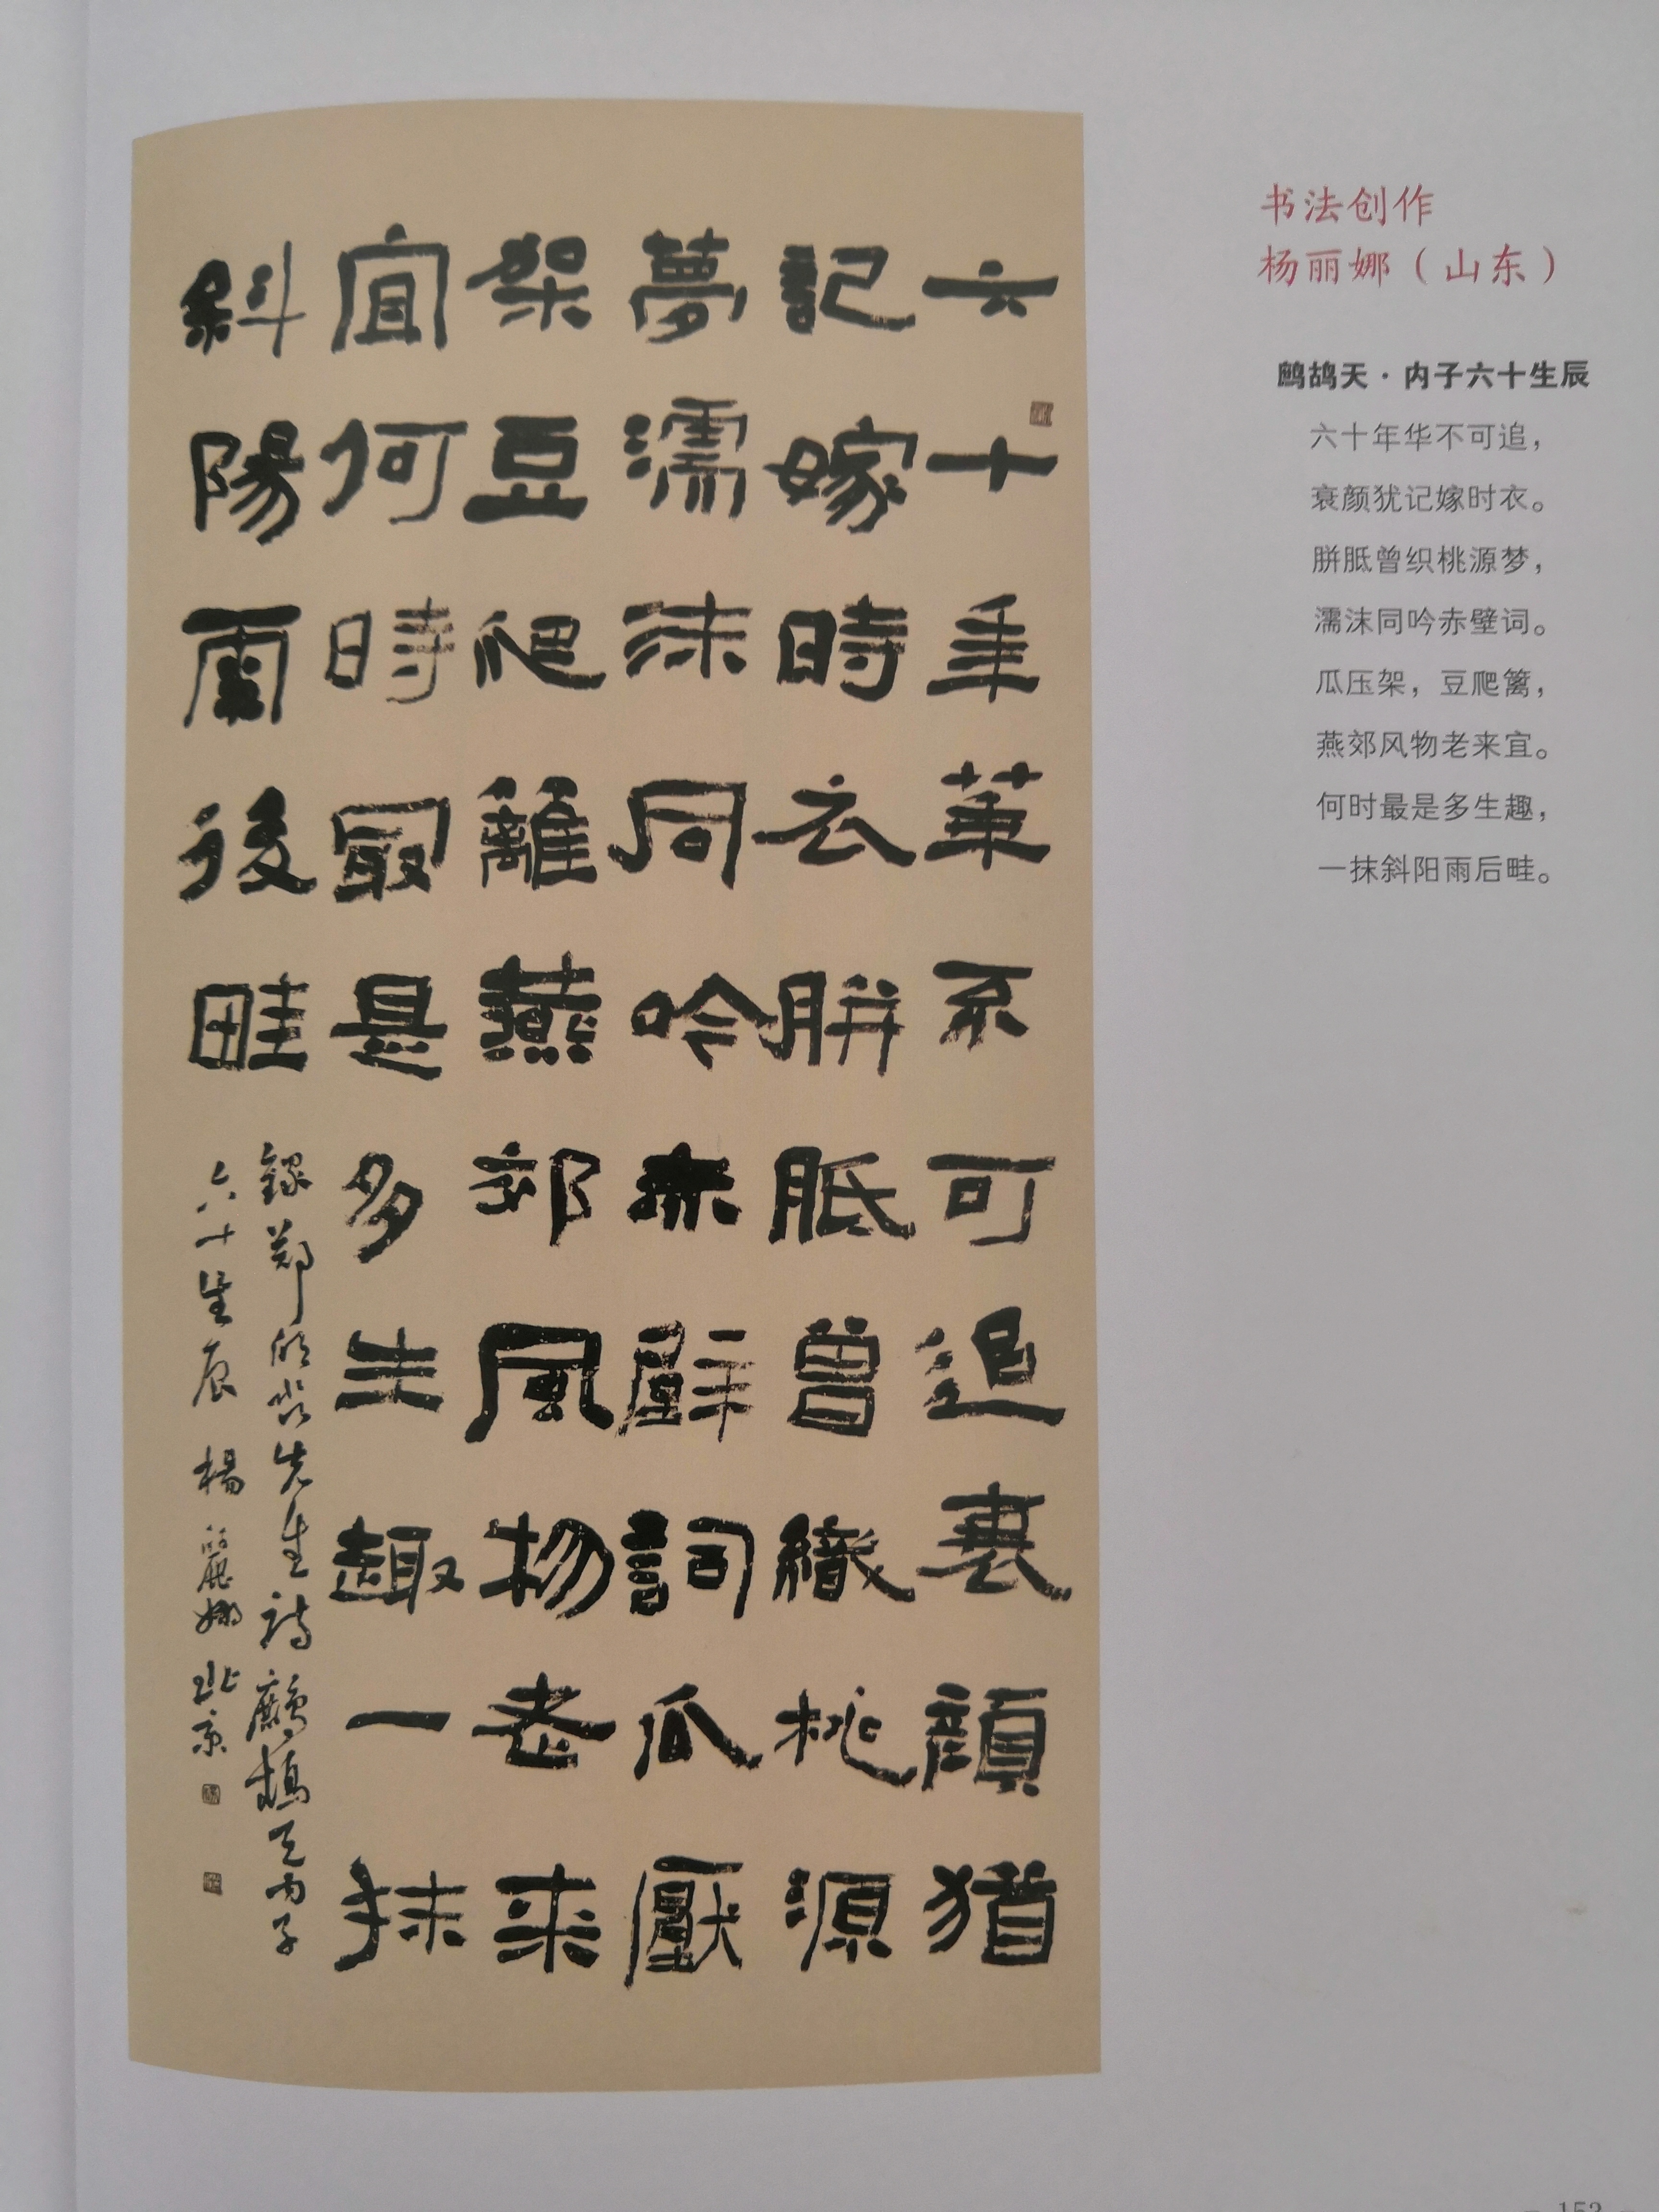 六十年華不可追衰顏猶
記嫁時衣胼胝曾織桃源
夢濡沫同吟赤壁詞瓜壓
架豆爬籬燕郊風物老来
宜何時最是多生趣一抹
斜陽雨後畦
錄鄭欣淼先生詩鷓鴣天内子
六十生辰 楊麗娜北京
书法创作
杨丽娜（山东）
鹧鸪天·内子六十生辰
六十年华不可追，
衰颜犹记嫁时衣。
胼胝曾织桃源梦，
濡沫同吟赤壁词。
瓜压架，豆爬篱，
燕郊风物老来宜。
何时最是多生趣，
一抹斜阳雨后畦。
153